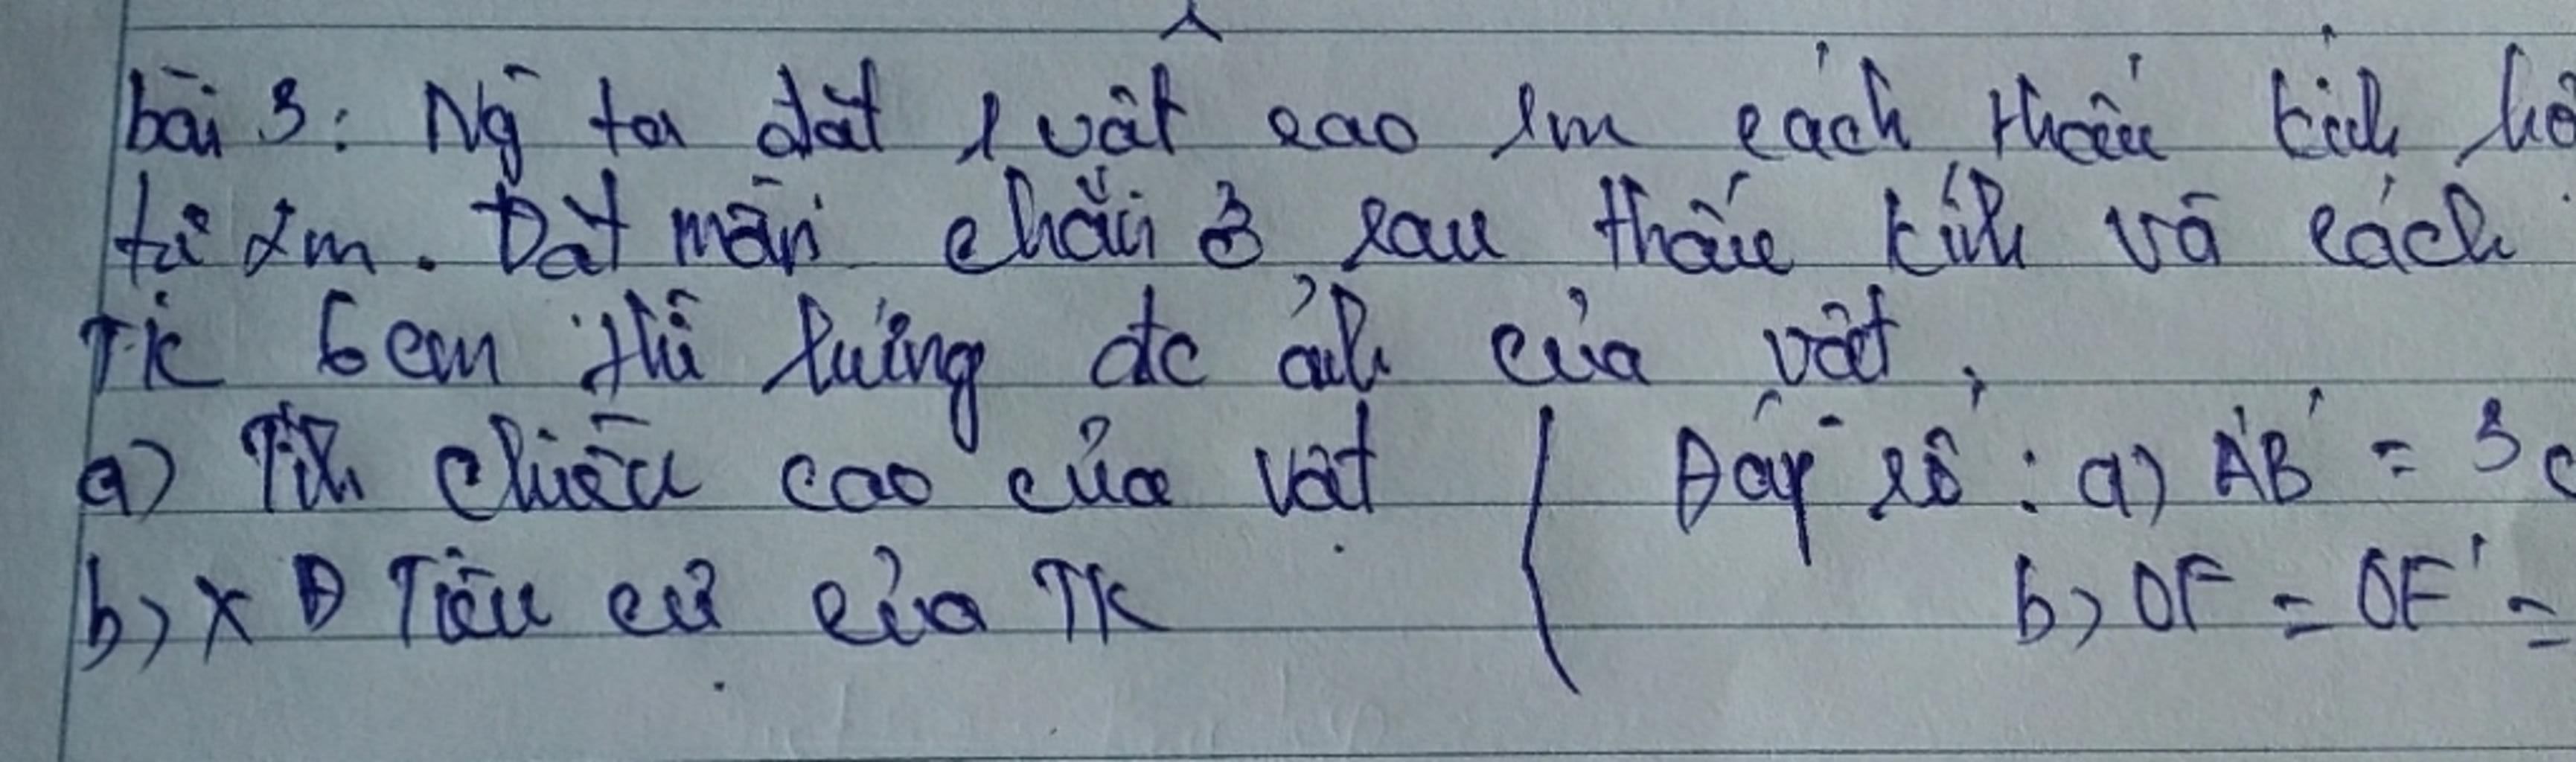 bài 3: Ng̀ ta đặt 1 vật cao 1m cách thấu kính hộ
tụ 2m. Đặt màn chắn ở sau thấu kính và cách
TK 6cm thì hứng đc ảnh của vật,
a) Tính chiều cao của vật Đáp số: a) A'B' = 3c
b) XĐ Tiêu cự của TK b) OF = OF' =